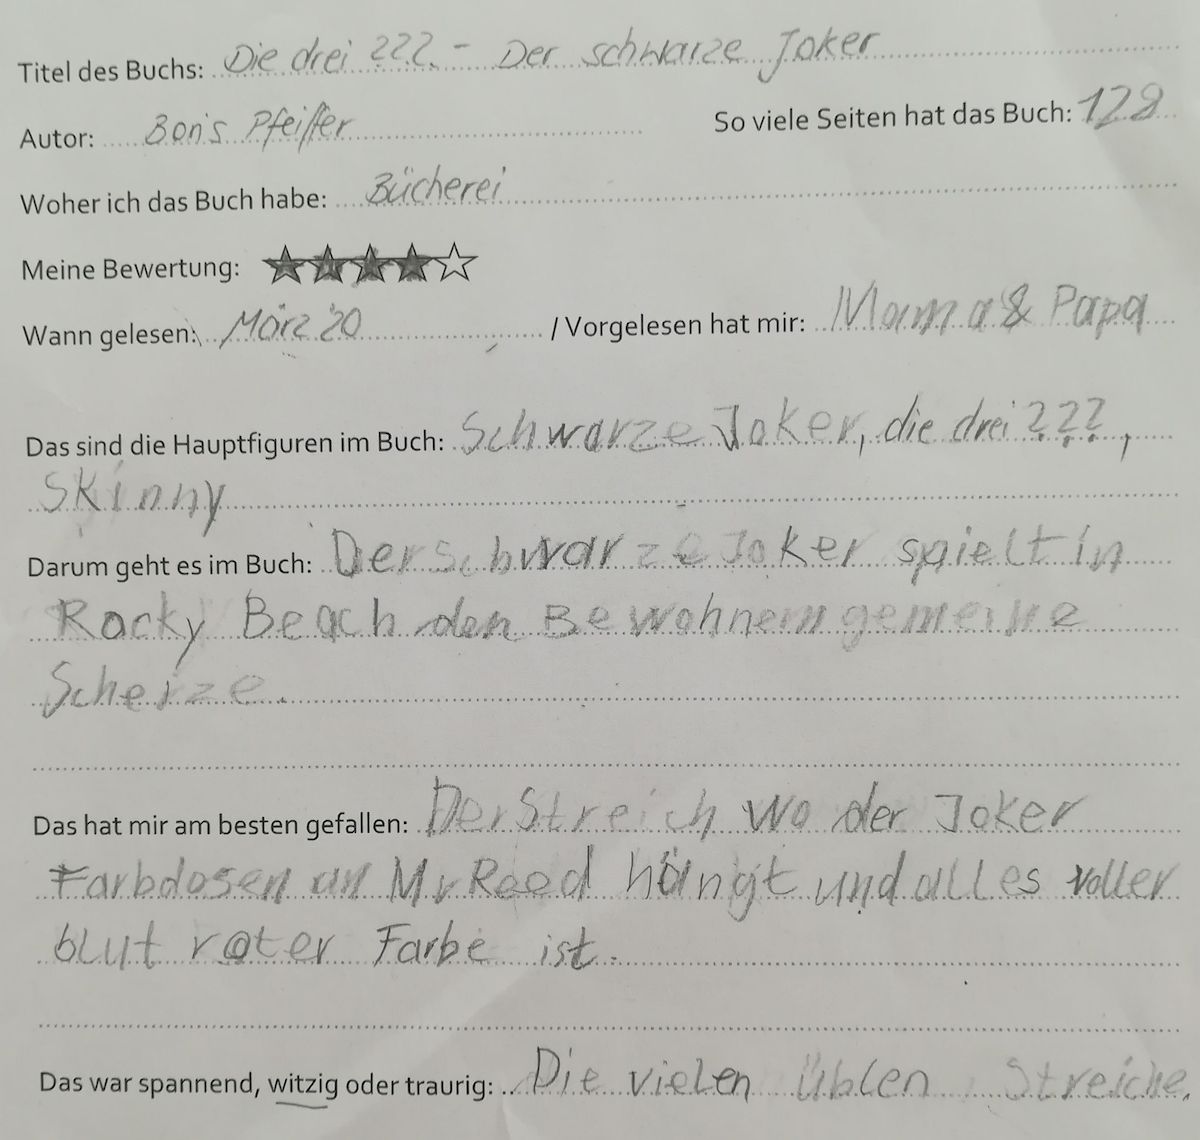 Titel des Buchs: Die drei ???. - Der schwarze Joker
Autor: Boris Pfeiffer So viele Seiten hat das Buch: 128
Woher ich das Buch habe: Bücherei
Meine Bewertung:
Wann gelesen: März '20 / Vorgelesen hat mir: Mama & Papa
Das sind die Hauptfiguren im Buch: Schwarze Joker, die drei ???,
Skinny
Darum geht es im Buch: Der schwarze Joker spielt in
Rocky Beach den Bewohnern gemeine
Scherze.
Das hat mir am besten gefallen: Der Streich wo der Joker
Farbdosen an Mr Reed hängt und alles voller
blut roter Farbe ist.
Das war spannend, witzig oder traurig: Die vielen üblen Streiche.